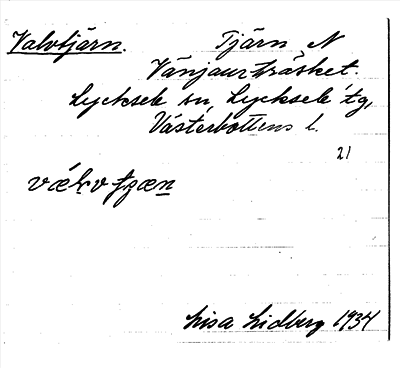 Valvtjärn. Tjärn N
Vänjaurträsket.
Lycksele sn, Lycksele tg,
Västerbottens l.
21
væḷv tʒæn
Lisa Lidberg 1934